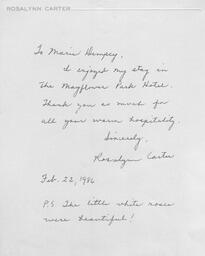 ROSALYNN CARTER
To Marie Dempsey,
I enjoyed my stay in
the Mayflower Park Hotel.
Thank you so much for
all your warm hospitality.
Sincerely,
Rosalynn Carter
Feb. 22, 1986
P.S. The little white roses
were beautiful!